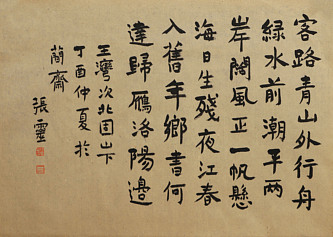 客路青山外行舟
綠水前潮平兩
岸闊風正一帆懸
海日生殘夜江春
入舊年鄉書何
達歸雁洛陽邊
王灣次北固山下
丁酉仲夏於
齋
張靈